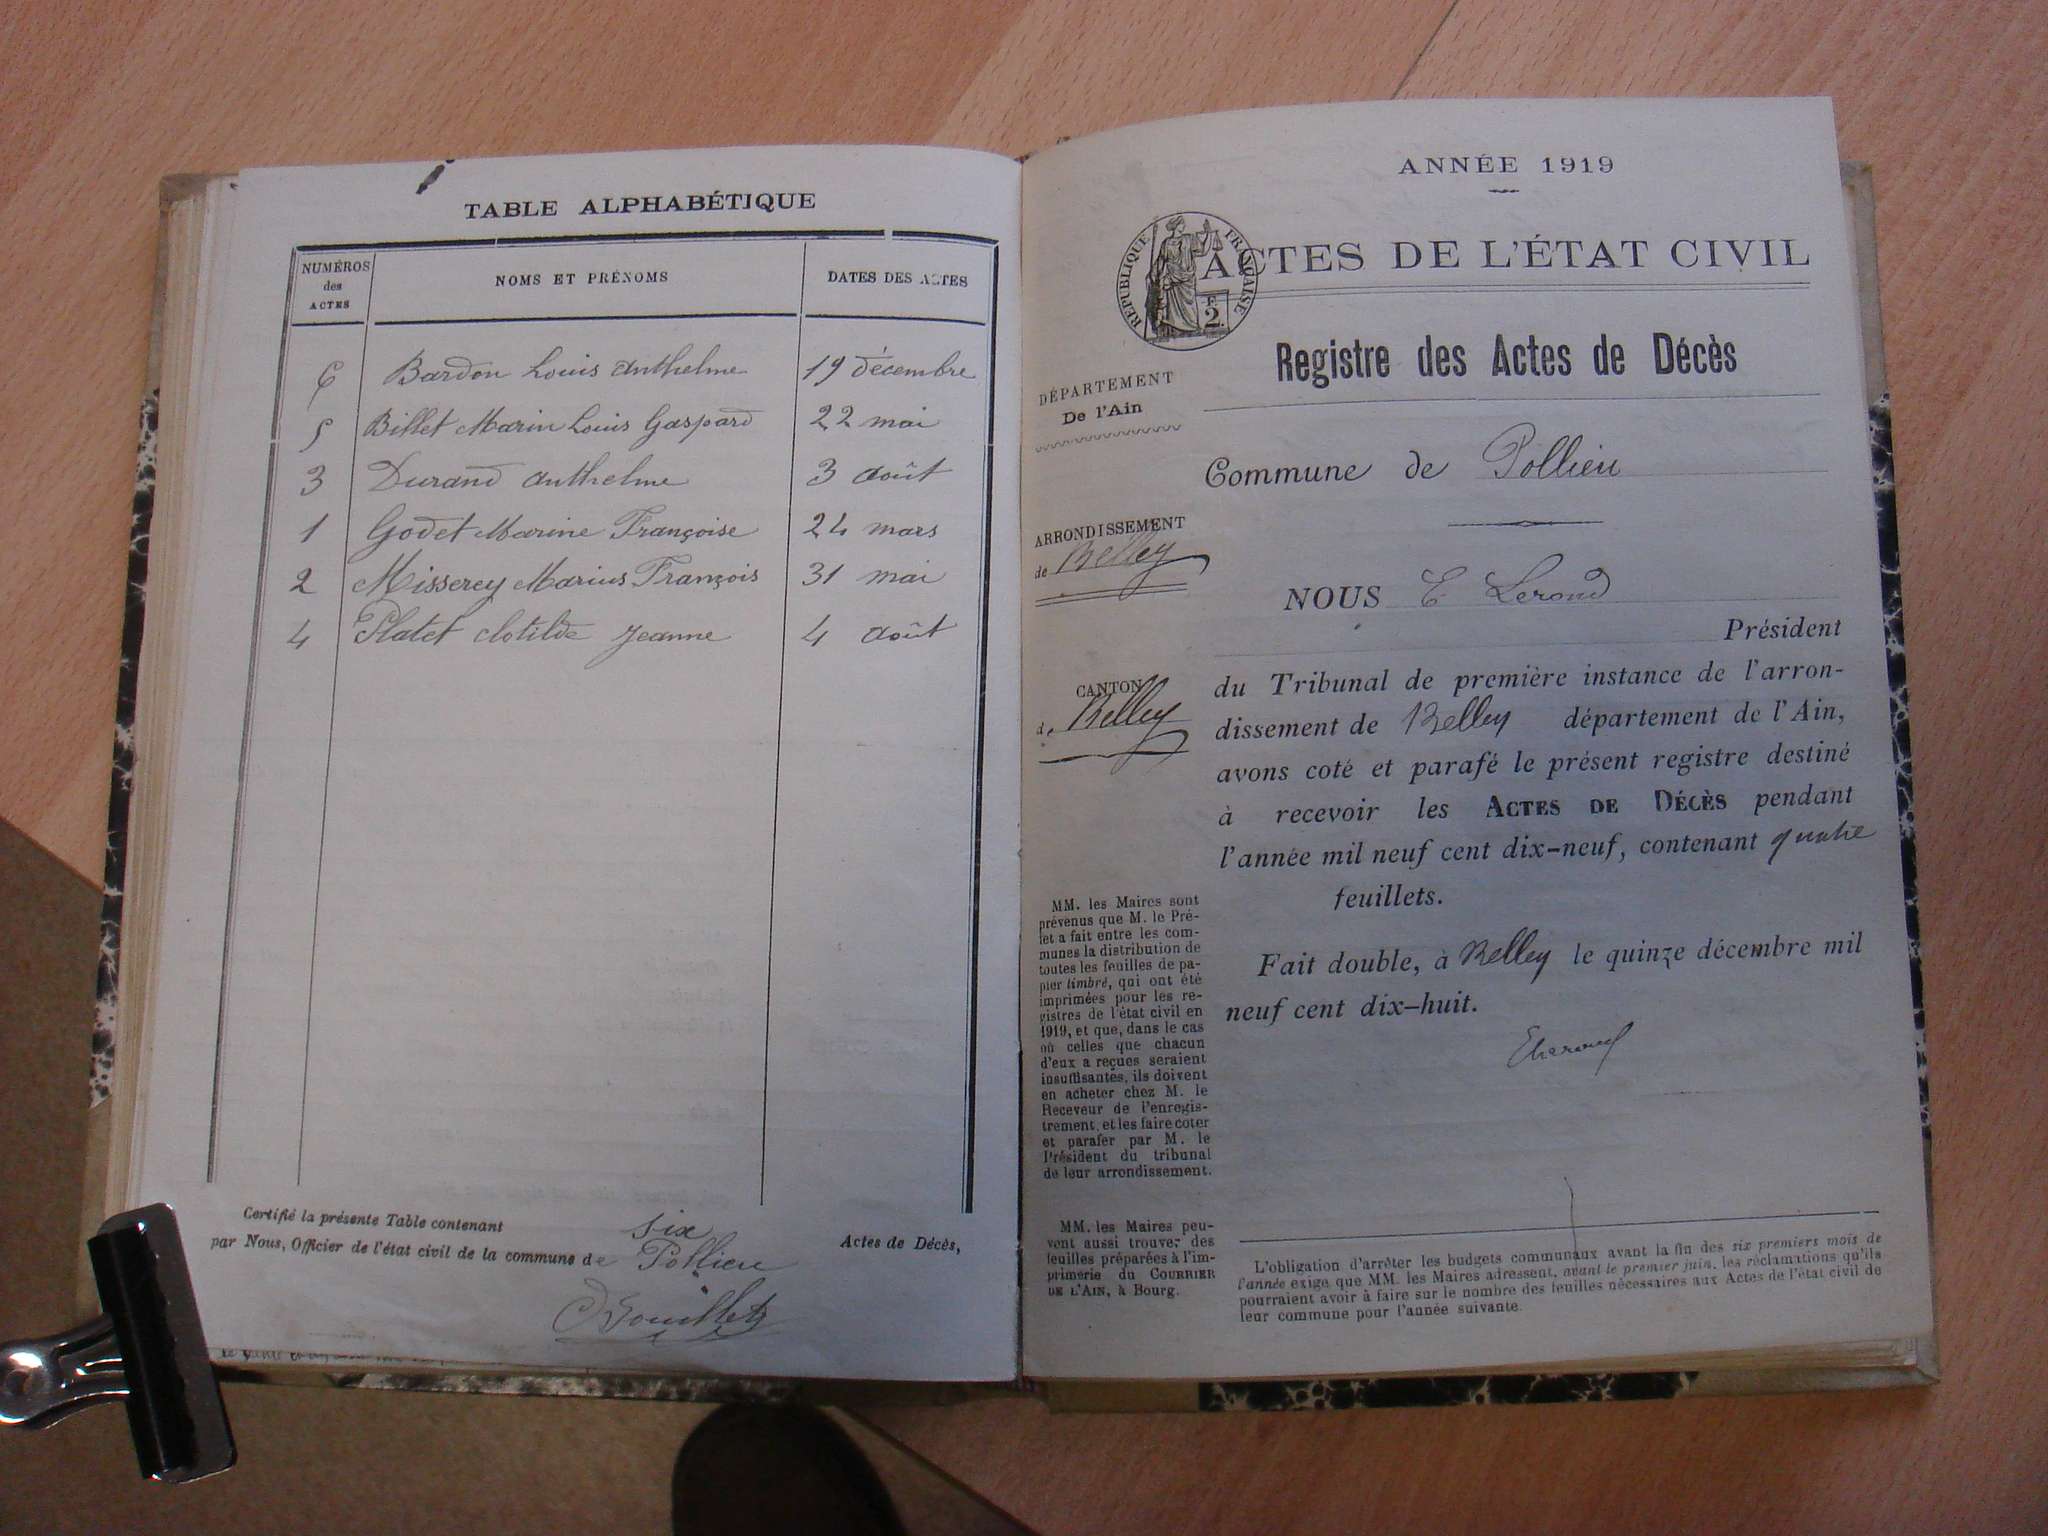 TABLE ALPHABÉTIQUE
NUMÉROS des ACTES NOMS ET PRÉNOMS DATES DES ACTES
6 Bardon Louis Anthelme 19 décembre
5 Billet Marin Louis Gaspard 22 mai
3 Durand Anthelme 3 août
1 Godet Marine Françoise 24 mars
2 Misserey Marius François 31 mai
4 Platet Clotilde Jeanne 4 août
Certifié la présente Table contenant six Actes de Décès,
par Nous, Officier de l'état civil de la commune de Pollieu
ANNÉE 1919
RÉPUBLIQUE FRANÇAISE
F. 2.
ACTES DE L'ÉTAT CIVIL
Registre des Actes de Décès
DÉPARTEMENT
De l'Ain
Commune de Pollieu
ARRONDISSEMENT
de Belley
NOUS E Lerond
Président
CANTON
de Belley
du Tribunal de première instance de l'arron-
dissement de Belley département de l'Ain,
avons coté et parafé le présent registre destiné
à recevoir les ACTES DE DÉCÈS pendant
l'année mil neuf cent dix-neuf, contenant quatre
feuillets.
Fait double, à Belley le quinze décembre mil
neuf cent dix-huit.
MM. les Maires sont
prévenus que M. le Pré-
fet a fait entre les com-
munes la distribution de
toutes les feuilles de pa-
pier timbré, qui ont été
imprimées pour les re-
gistres de l'état civil en
1919, et que, dans le cas
où celles que chacun
d'eux a reçues seraient
insuffisantes, ils doivent
en acheter chez M. le
Receveur de l'enregis-
trement, et les faire coter
et parafer par M. le
Président du tribunal
de leur arrondissement.
MM. les Maires peu-
vent aussi trouver des
feuilles préparées à l'im-
primerie du COURRIER
DE L'AIN, à Bourg.
L'obligation d'arrêter les budgets communaux avant la fin des six premiers mois de
l'année exige que MM. les Maires adressent, avant le premier juin, les réclamations qu'ils
pourraient avoir à faire sur le nombre des feuilles nécessaires aux Actes de l'état civil de
leur commune pour l'année suivante.